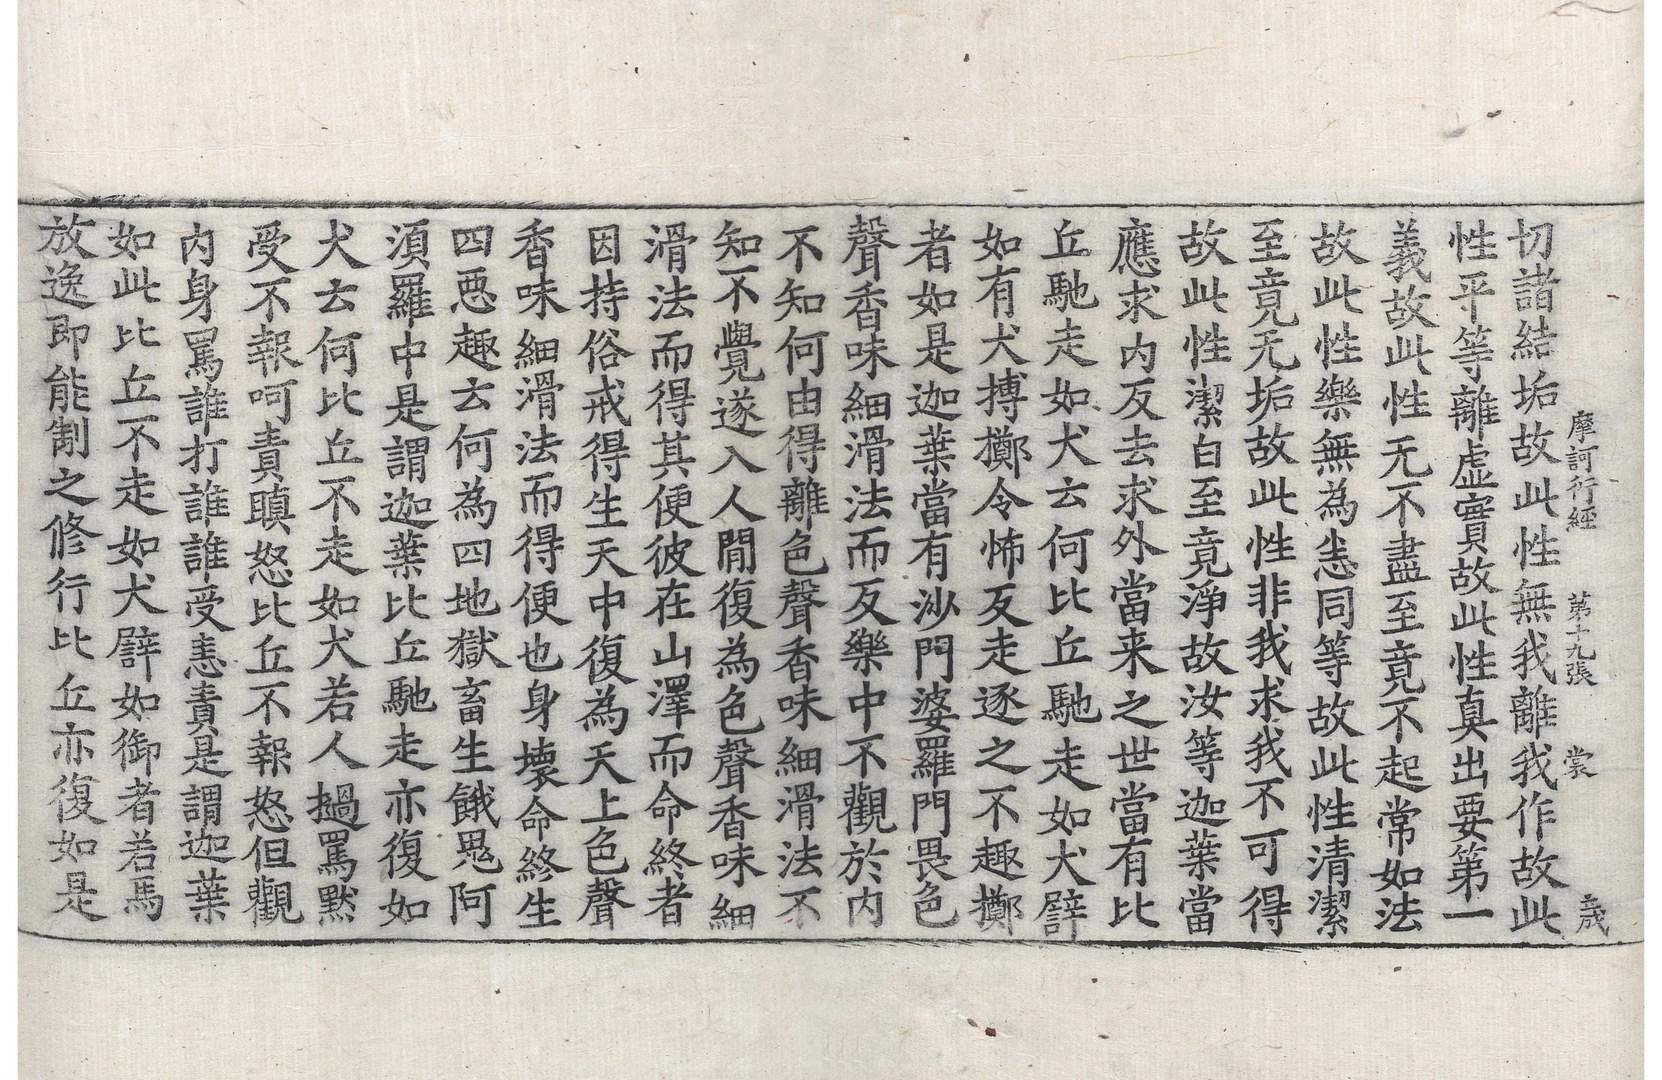 摩訶行經 第十九張 裳 歲
切諸結垢故此性無我離我作故此
性平等離虛實故此性真出要第一
義故此性无不盡至竟不起常如法
故此性樂無為恙同等故此性清潔
至竟无垢故此性非我求我不可得
故此性潔白至竟淨故汝等迦葉當
應求內反去求外當来之世當有比
丘馳走如犬云何比丘馳走如犬譬
如有犬搏擲令怖反走逐之不趣擲
者如是迦葉當有沙門婆羅門畏色
聲香味細滑法而反樂中不觀於內
不知何由得離色聲香味細滑法不
知不覺遂入人間復為色聲香味細
滑法而得其便彼在山澤而命終者
因持俗戒得生天中復為天上色聲
香味細滑法而得便也身壞命終生
四惡趣云何為四地獄畜生餓鬼阿
須羅中是謂迦葉比丘馳走亦復如
犬云何比丘不走如犬若人撾罵默
受不報呵責瞋怒比丘不報怒但觀
內身罵誰打誰誰受恚責是謂迦葉
如此比丘不走如犬譬如御者若馬
放逸即能制之修行比丘亦復如是